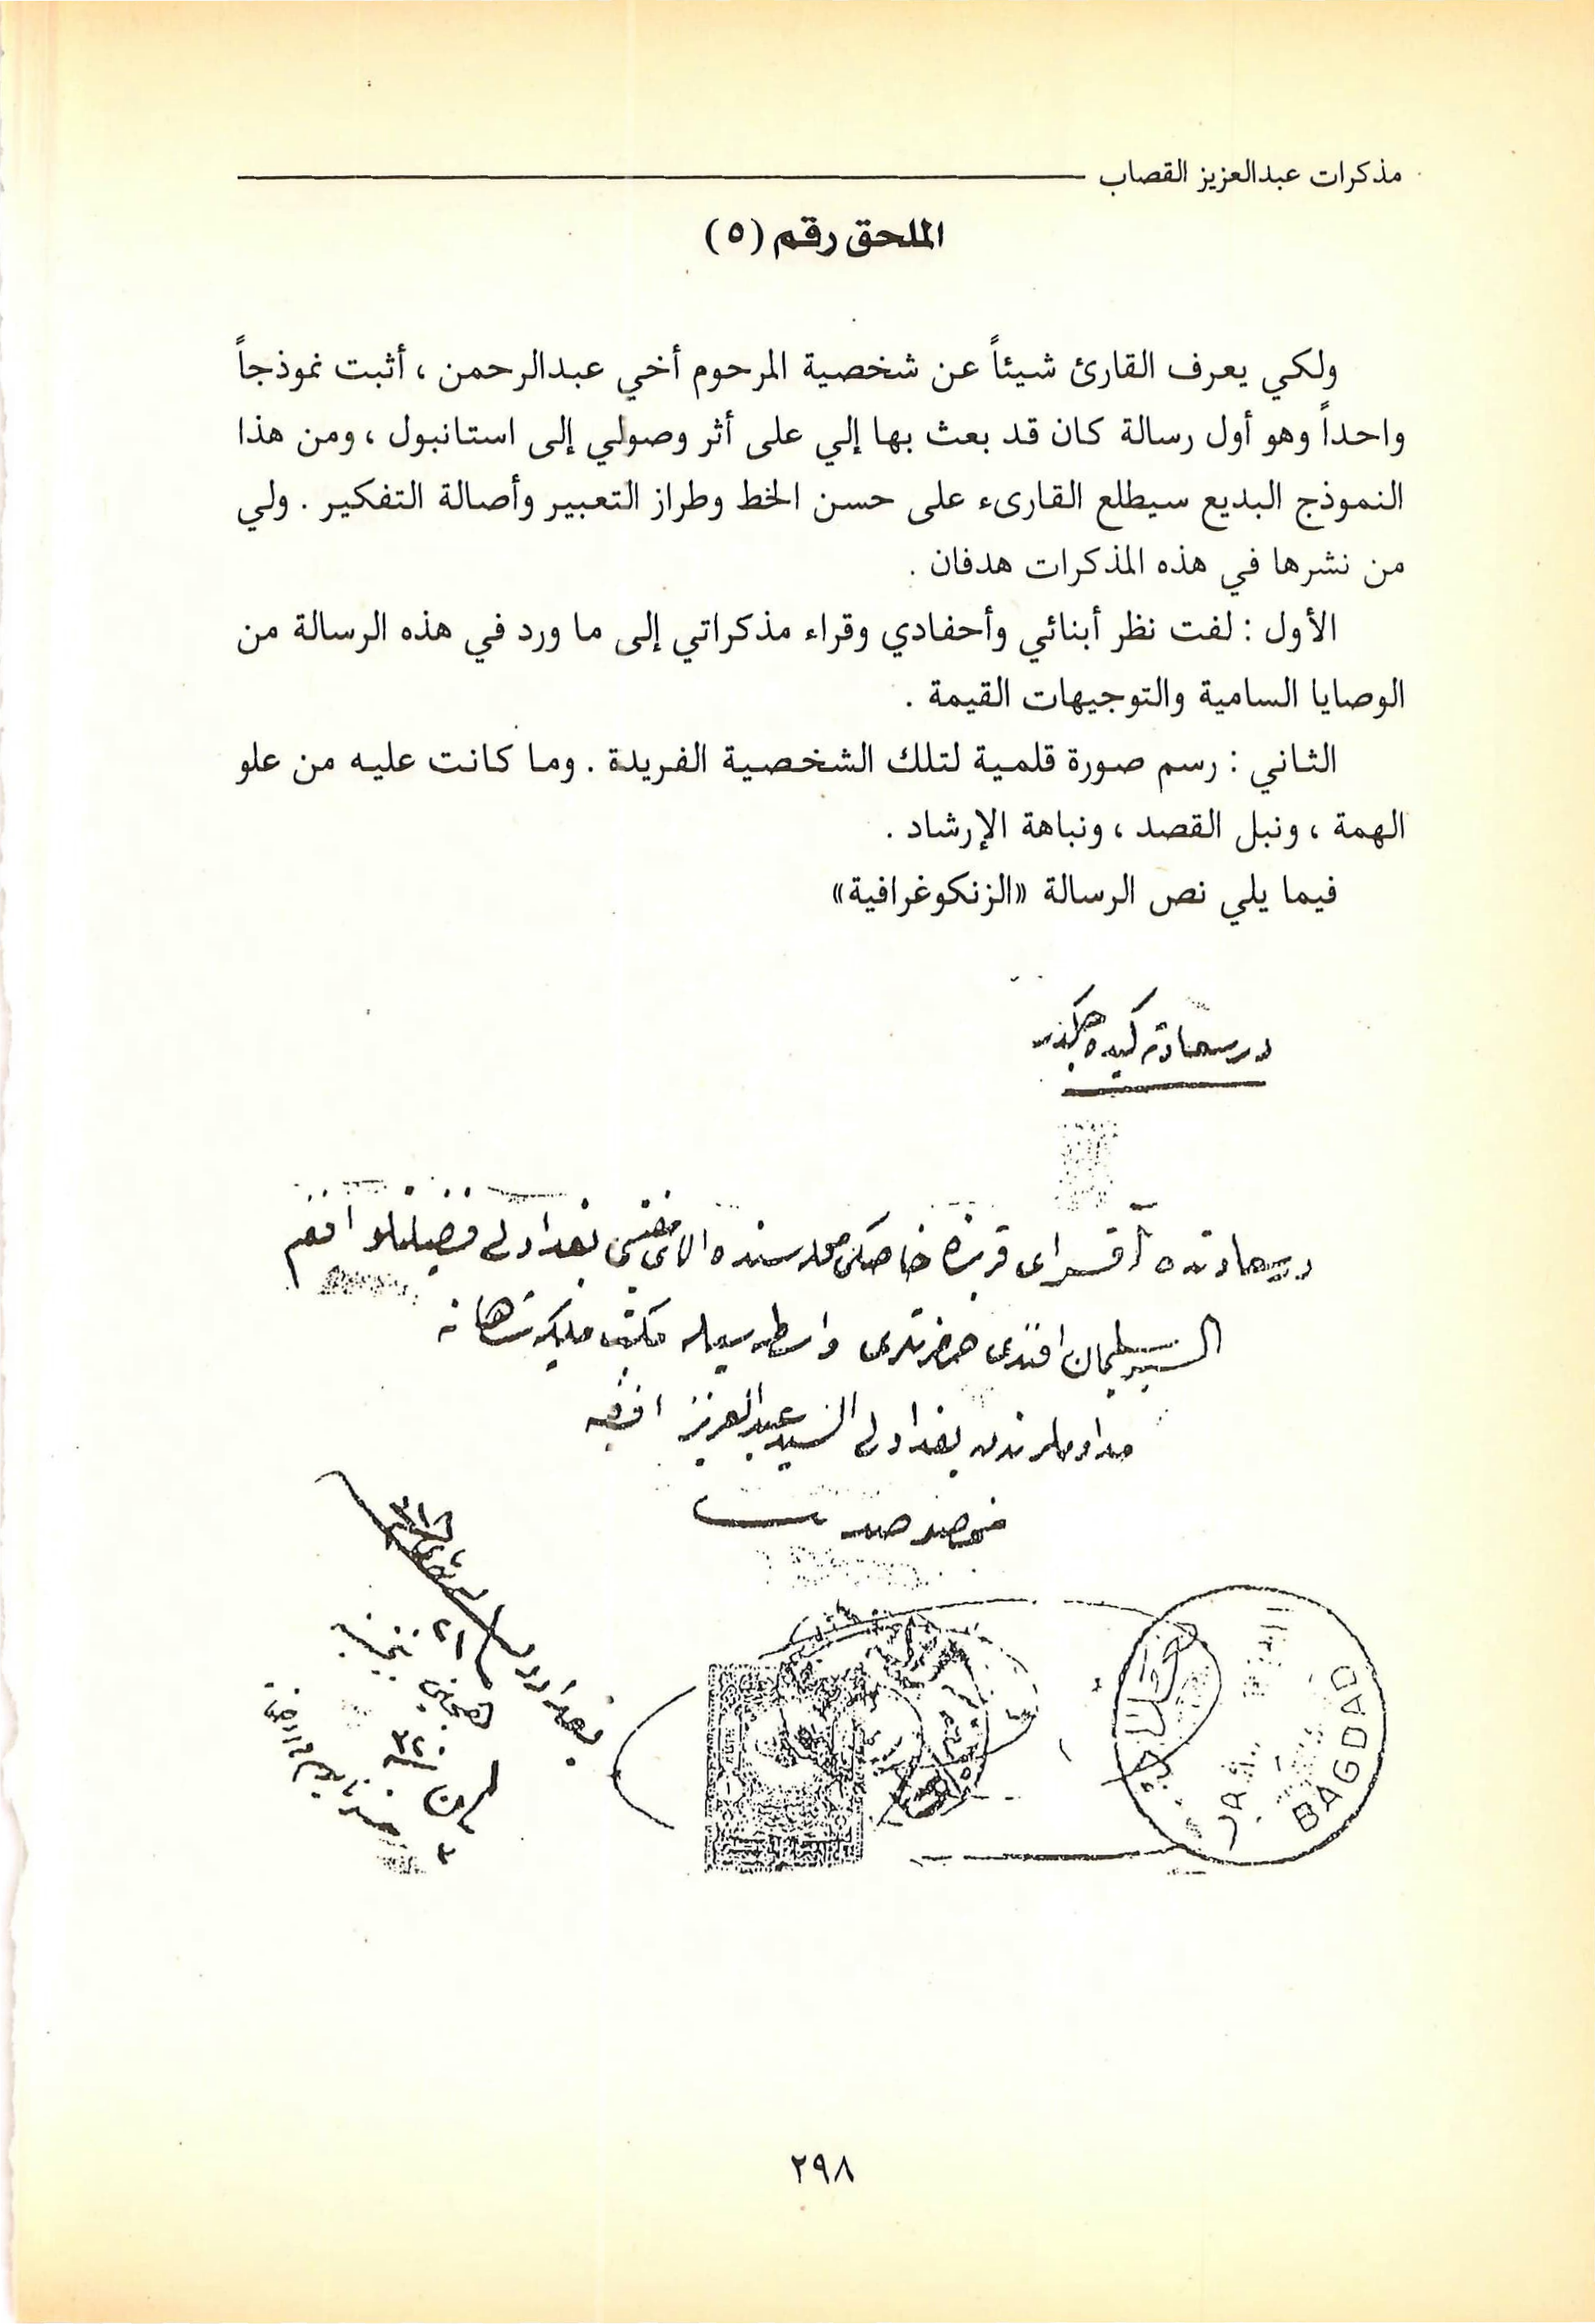 مذكرات عبدالعزيز القصاب
الملحق رقم (٥)
ولكي يعرف القارئ شيئاً عن شخصية المرحوم أخي عبدالرحمن ، أثبت نموذجاً
واحداً وهو أول رسالة كان قد بعث بها إلي على أثر وصولي إلى استانبول ، ومن هذا
النموذج البديع سيطلع القارىء على حسن الخط وطراز التعبير وأصالة التفكير . ولي
من نشرها في هذه المذكرات هدفان .
الأول : لفت نظر أبنائي وأحفادي وقراء مذكراتي إلى ما ورد في هذه الرسالة من
الوصايا السامية والتوجيهات القيمة .
الثاني : رسم صورة قلمية لتلك الشخصية الفريدة . وما كانت عليه من علو
الهمة ، ونبل القصد ، ونباهة الإرشاد .
فيما يلي نص الرسالة «الزنكوغرافية»
درسعادتده آقسراى قربنده خاصكى محله سنده الاى مفتيسى بغدادلى فضيلتلو افندم
السيد سليمان افندى حضرتلرى واسطه سيله مكتب ملكيه شاهانه
مداوملرندن بغدادلى السيد عبدالعزيز افندى يه
BAGDAD
٢٩٨